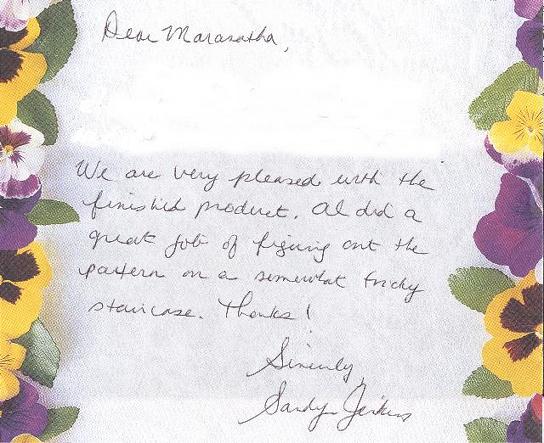 Dear Marasatha,
We are very pleased with the
finished product. Al did a
great job of figuring out the
pattern on a somewhat tricky
staircase. Thanks!
Sincerely,
Sandy Jenkins